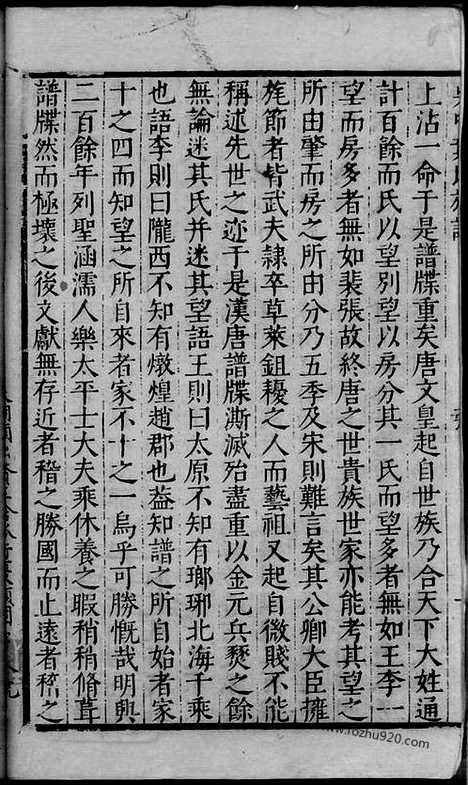 上沾一命于是譜牒重矣唐文皇起自世族乃合天下大姓通
計百餘而氏以望別望以房分其一氏而望多者無如王李一
望而房多者無如裴張故終唐之世貴族世家亦能考其望之
所由肇而房之所由分乃五季及宋則難言矣其公卿大臣擁
旄節者皆武夫隸卒草萊鉏耰之人而藝祖又起自微賤不能
稱述先世之迹于是漢唐譜牒澌滅殆盡重以金元兵燹之餘
無論迷其氏并迷其望語王則曰太原不知有瑯琊北海千乘
也語李則曰隴西不知有燉煌趙郡也葢知譜之所自始者家
十之四而知望之所自來者家不十之一烏乎可勝慨哉明興
二百餘年列聖涵濡人樂太平士大夫乘休養之暇稍稍脩葺
譜牒然而極壞之後文獻無存近者稽之勝國而止遠者稽之
www.fozhu920.com